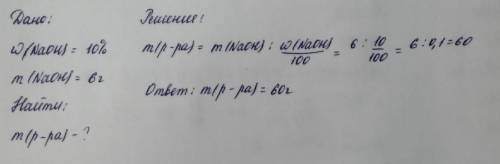 Дано:
w(NaOH) = 10%
m(NaOH) = 6г
Найти:
m(р-ра) - ?
Решение:
m(р-ра) = m(NaOH) : w(NaOH)/100 = 6 : 10/100 = 6 : 0,1 = 60
Ответ: m(р-ра) = 60г